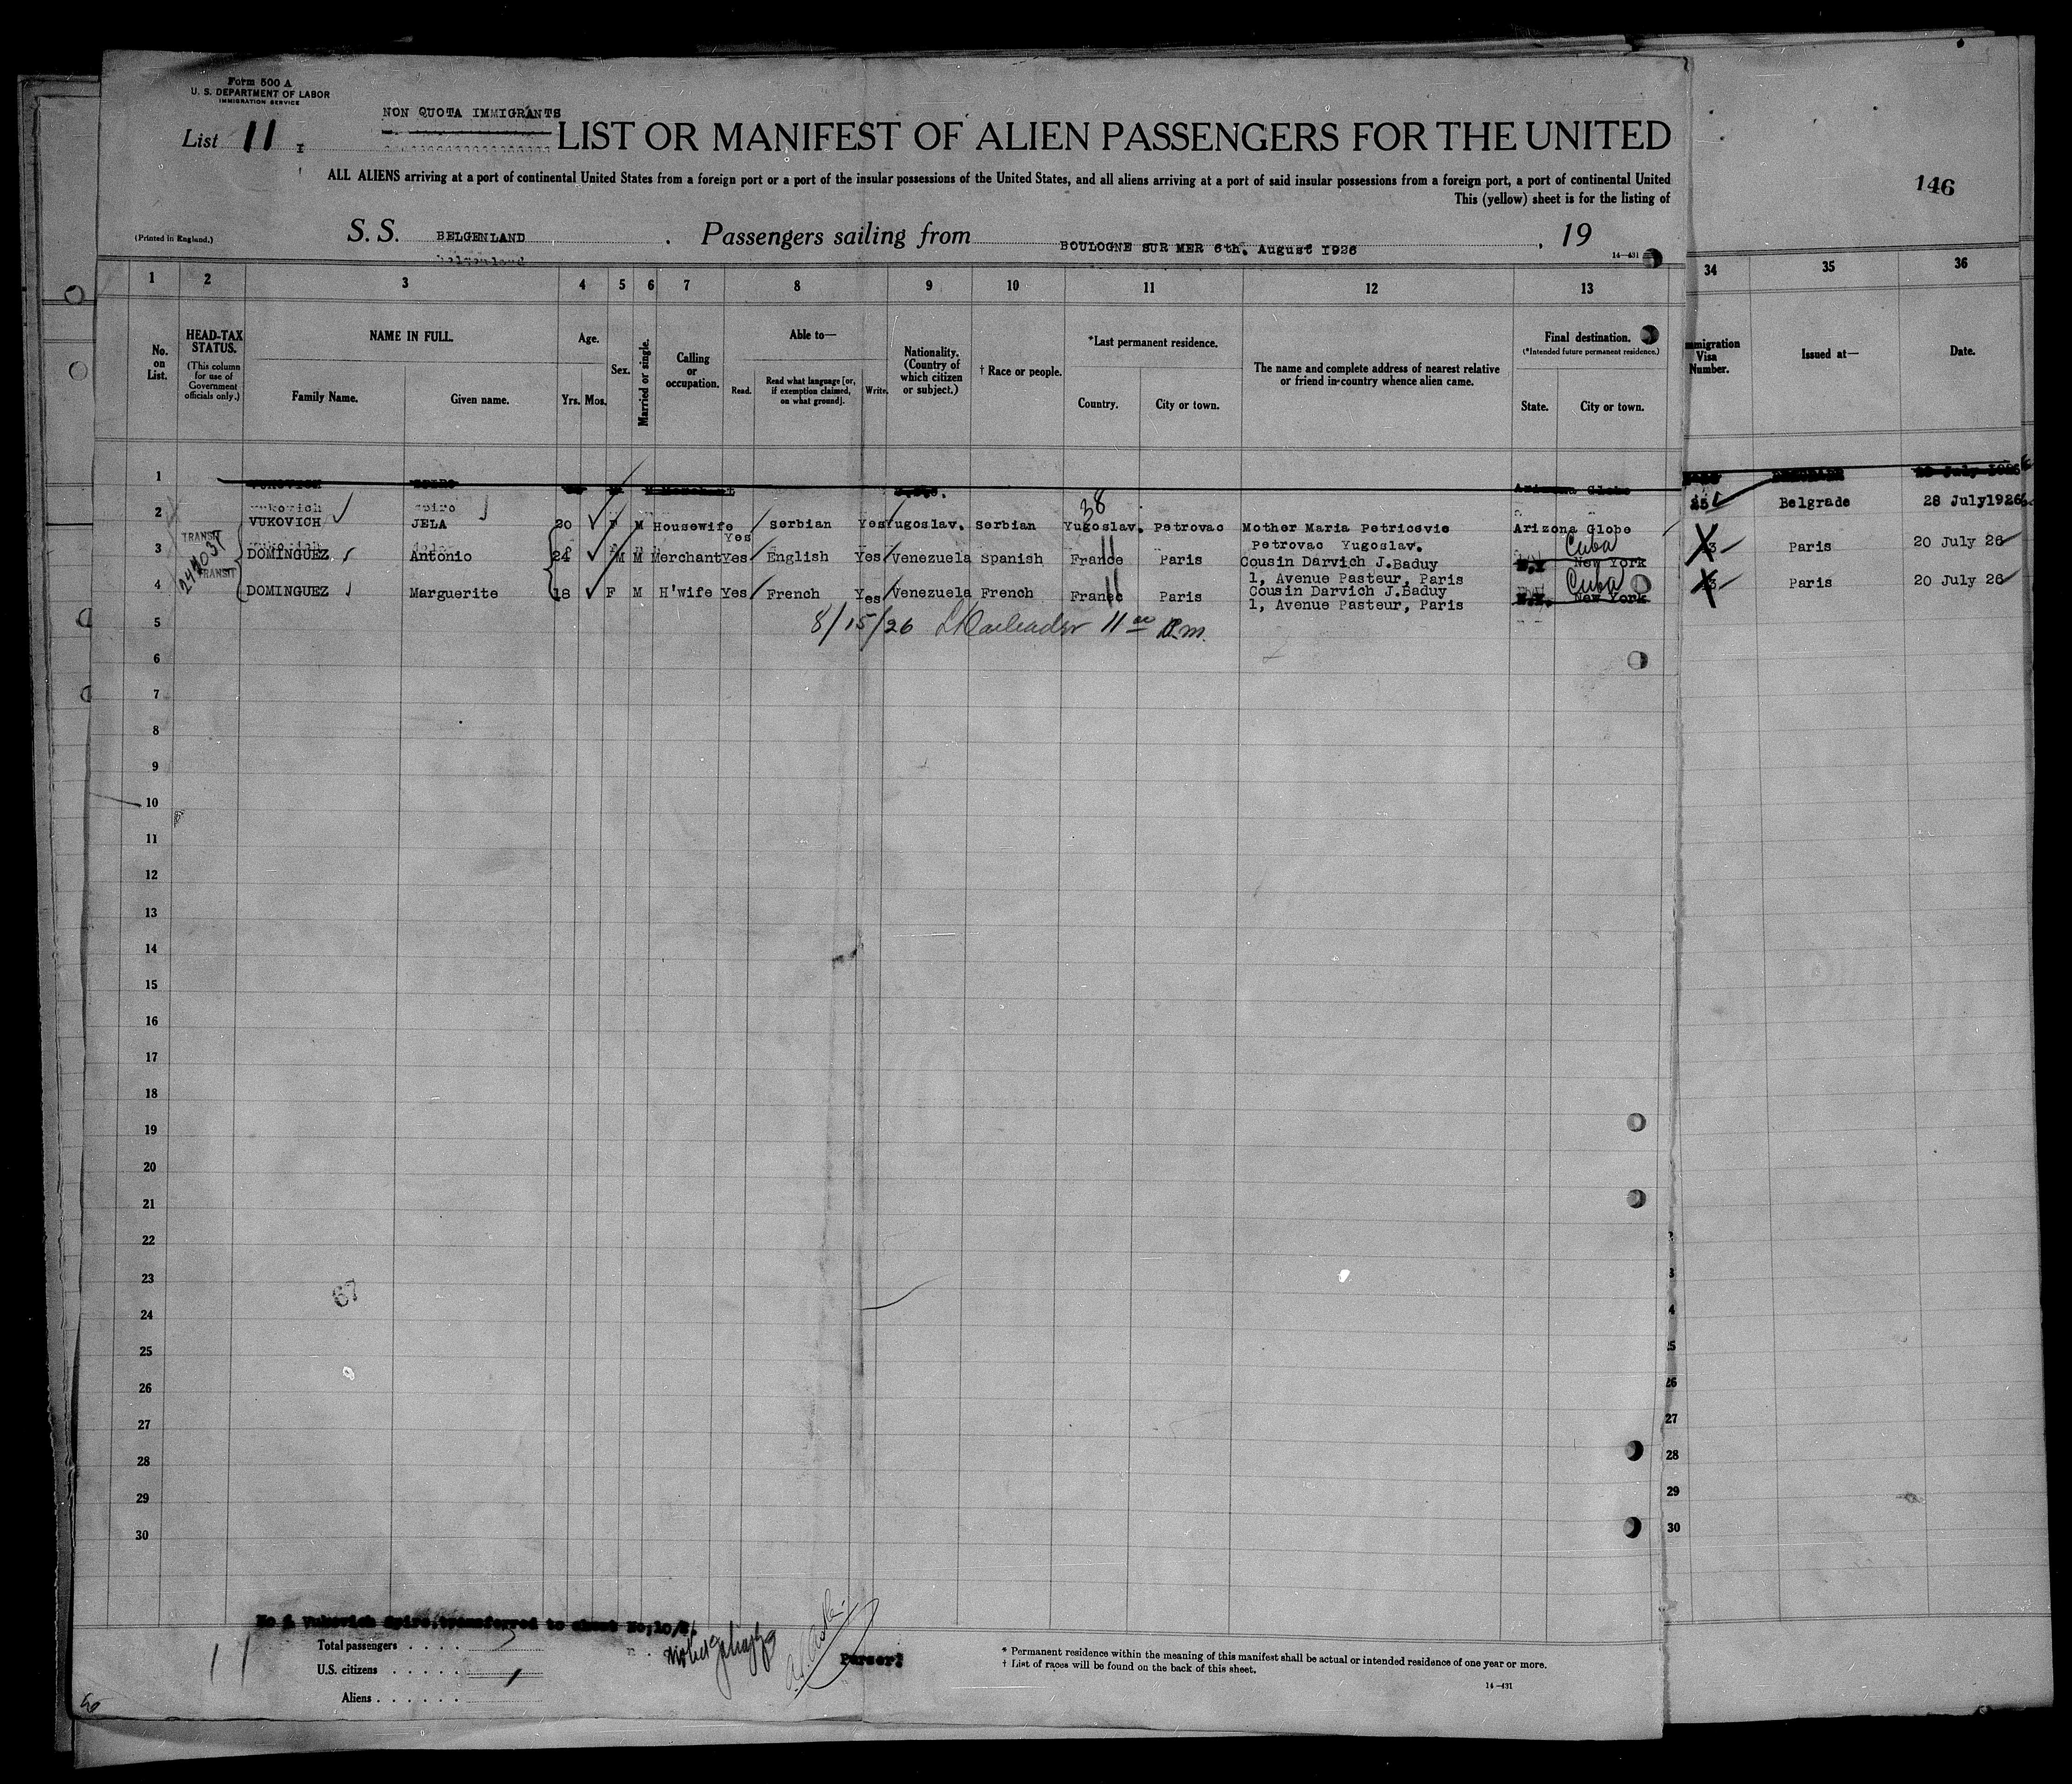 Form 500 A
U. S. DEPARTMENT OF LABOR
IMMIGRATION SERVICE
NON QUOTA IMMIGRANTS
List 11 I
LIST OR MANIFEST OF ALIEN PASSENGERS FOR THE UNITED
ALL ALIENS arriving at a port of continental United States from a foreign port or a port of the insular possessions of the United States, and all aliens arriving at a port of said insular possessions from a foreign port, a port of continental United
This (yellow) sheet is for the listing of
146
(Printed in England.)
S. S. BELGENLAND . Passengers sailing from BOULOGNE SUR MER 6th. August 1926 , 19
belgenland
14-431
1 2 3 4 5 6 7 8 9 10 11 12 13 34 35 36
No. on List.
HEAD-TAX STATUS.
(This column for use of Government officials only.)
NAME IN FULL.
Family Name. Given name.
Age.
Yrs. Mos.
Sex.
Married or single.
Calling or occupation.
Able to—
Read. Read what language [or, if exemption claimed, on what ground]. Write.
Nationality. (Country of which citizen or subject.)
† Race or people.
*Last permanent residence.
Country. City or town.
The name and complete address of nearest relative or friend in country whence alien came.
Final destination.
(*Intended future permanent residence.)
State. City or town.
mmigration Visa Number.
Issued at—
Date.
1 VUKOVICH SPIRO M Merchant Arizona Globe 28 July 1926
vukovich spiro
2 VUKOVICH JELA 20 F M Housewife Yes Serbian Yes Yugoslav. Serbian 38 Yugoslav. Petrovac Mother Maria Petricevic Arizona Globe 25 Belgrade 28 July 1926
Petrovac Yugoslav.
3 TRANSIT DOMINGUEZ Antonio 24 M M Merchant Yes English Yes Venezuela Spanish France 11 Paris Cousin Darvich J.Baduy N.Y New York Cuba 13 Paris 20 July 26
1, Avenue Pasteur, Paris
4 TRANSIT DOMINGUEZ Marguerite 18 F M H'wife Yes French Yes Venezuela French France 11 Paris Cousin Darvich J.Baduy N.Y. New York Cuba 13 Paris 20 July 26
1, Avenue Pasteur, Paris
5 8/15/26 11 00 a.m.
6
7
8
9
10
11
12
13
14
15
16
17
18
19
20
21
22
23
67
24
25
26 26
27 27
28 28
29 29
30 30
No 1 Vukovich Spiro, transferred to sheet No;10/
Total passengers . . . .
U.S. citizens . . . . .
Aliens . . . . . .
11
Purser:
* Permanent residence within the meaning of this manifest shall be actual or intended residence of one year or more.
† List of races will be found on the back of this sheet.
14-431